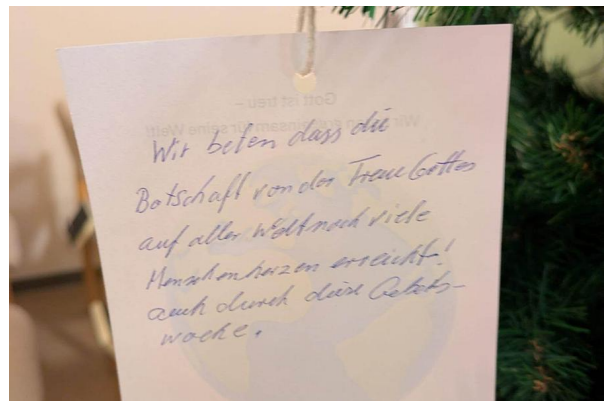 Wir beten dass die
Botschaft von der Treue Gottes
auf aller Welt noch viele
Menschenherzen erreicht!
auch durch diese Gebets-
woche.
Gott ist treu –
für seine Welt!